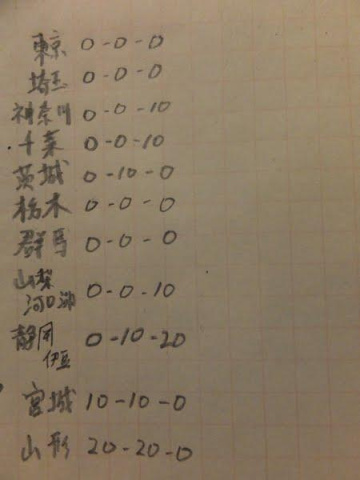 東京 0-0-0
埼玉 0-0-0
神奈川 0-0-10
千葉 0-0-10
茨城 0-10-0
栃木 0-0-0
群馬 0-0-0
山梨
河口湖 0-0-10
静岡
伊豆 0-10-20
宮城 10-10-0
山形 20-20-0